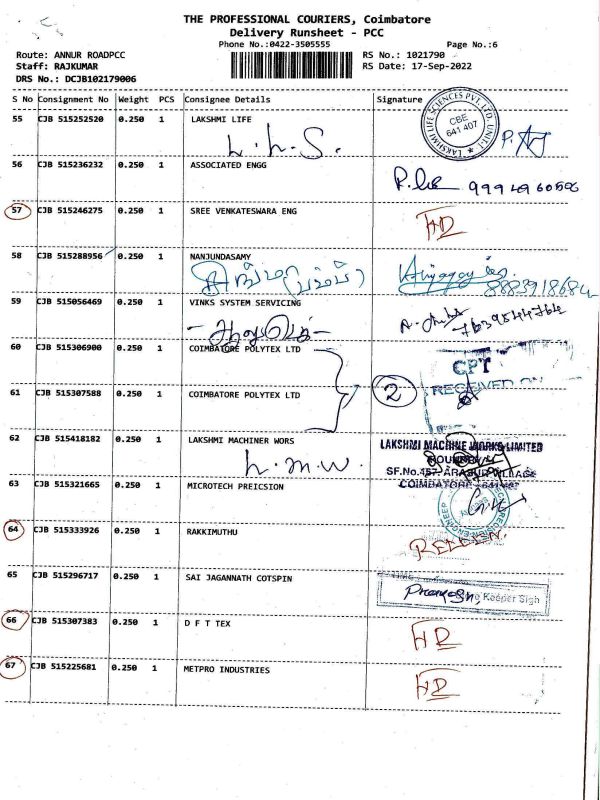 THE PROFESSIONAL COURIERS, Coimbatore
Delivery Runsheet - PCC
Phone No.:0422-3505555 Page No.:6
Route: ANNUR ROADPCC RS No.: 1021790
Staff: RAJKUMAR RS Date: 17-Sep-2022
DRS No.: DCJB102179006
S No Consignment No Weight PCS Consignee Details Signature
55 CJB 515252520 0.250 1 LAKSHMI LIFE
LAKSHMI LIFE SCIENCES PVT. LTD. UNIT-I
CBE
641 407
L.h.S.
56 CJB 515236232 0.250 1 ASSOCIATED ENGG
57 CJB 515246275 0.250 1 SREE VENKATESWARA ENG
HD
58 CJB 515288956 0.250 1 NANJUNDASAMY
8883918684
59 CJB 515056469 0.250 1 VINKS SYSTEM SERVICING
7639544764
60 CJB 515306900 0.250 1 COIMBATORE POLYTEX LTD
CPT
RECEIVED ON
2
61 CJB 515307588 0.250 1 COIMBATORE POLYTEX LTD
62 CJB 515418182 0.250 1 LAKSHMI MACHINER WORS
L.M.W.
LAKSHMI MACHINE WORKS LIMITED
COIMBATORE
63 CJB 515321665 0.250 1 MICROTECH PREICSION
64 CJB 515333926 0.250 1 RAKKIMUTHU
65 CJB 515296717 0.250 1 SAI JAGANNATH COTSPIN
Keeper Sigh
66 CJB 515307383 0.250 1 D F T TEX
HD
67 CJB 515225681 0.250 1 METPRO INDUSTRIES
HD